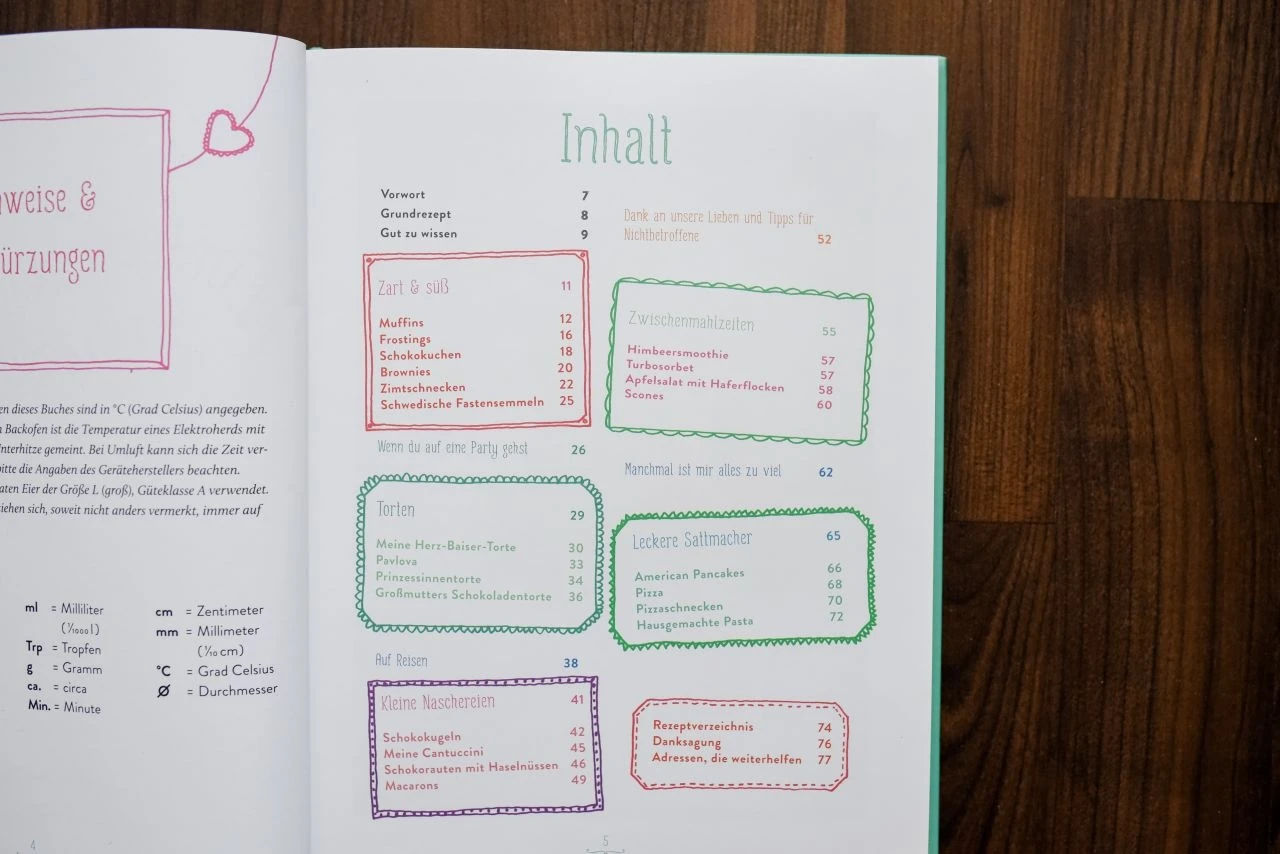 &
dieses Buches sind in °C (Grad Celsius) angegeben.
Backofen ist die Temperatur eines Elektroherds mit
gemeint. Bei Umluft kann sich die Zeit ver-
die Angaben des Geräteherstellers beachten.
Eier der Größe L (groß), Güteklasse A verwendet.
sich, soweit nicht anders vermerkt, immer auf
ml = Milliliter
(1/1000 l)
Trp = Tropfen
g = Gramm
ca. = circa
Min. = Minute
cm = Zentimeter
mm = Millimeter
(1/10 cm)
°C = Grad Celsius
Ø = Durchmesser
4
Inhalt
Vorwort 7
Grundrezept 8
Gut zu wissen 9
Zart & süß 11
Muffins 12
Frostings 16
Schokokuchen 18
Brownies 20
Zimtschnecken 22
Schwedische Fastensemmeln 25
Wenn du auf eine Party gehst 26
Torten 29
Meine Herz-Baiser-Torte 30
Pavlova 33
Prinzessinnentorte 34
Großmutters Schokoladentorte 36
Auf Reisen 38
Kleine Naschereien 41
Schokokugeln 42
Meine Cantuccini 45
Schokorauten mit Haselnüssen 46
Macarons 49
Dank an unsere Lieben und Tipps für
Nichtbetroffene 52
Zwischenmahlzeiten 55
Himbeersmoothie 57
Turbosorbet 57
Apfelsalat mit Haferflocken 58
Scones 60
Manchmal ist mir alles zu viel 62
Leckere Sattmacher 65
American Pancakes 66
Pizza 68
Pizzaschnecken 70
Hausgemachte Pasta 72
Rezeptverzeichnis 74
Danksagung 76
Adressen, die weiterhelfen 77
5